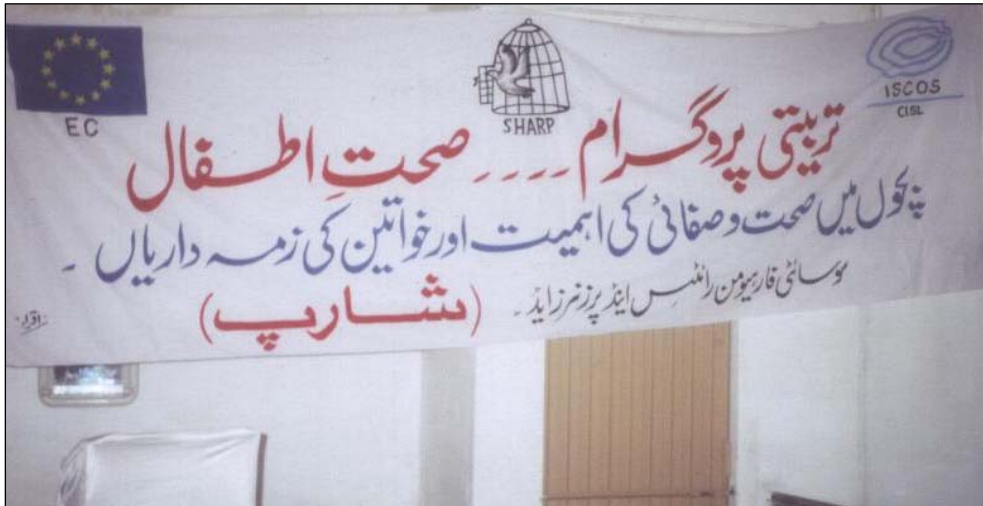 EC
SHARP
ISCOS
CISL
تربیتی پروگرام ---- صحتِ اطفال
بچوں میں صحت و صفائی کی اہمیت اور خواتین کی زمہ داریاں -
سوسائٹی فار ہیومن رائٹس اینڈ پرزنرز ایڈ - (شارپ)